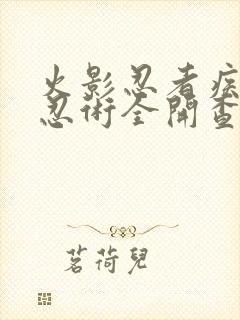 火影忍者疾
忍術全開查
茗荷兒